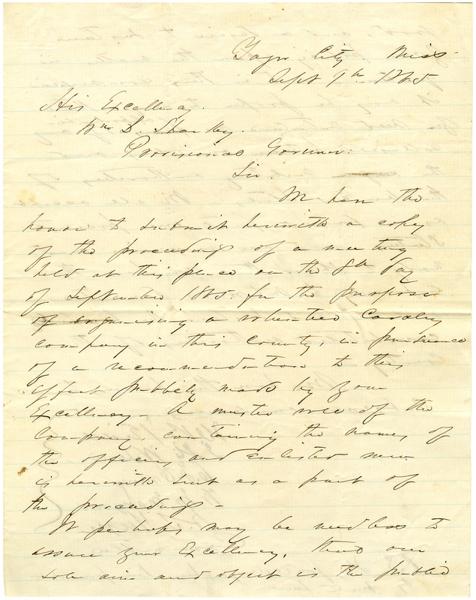 Yazoo City Miss
Sept 9th 1865
His Excellency
Wm L. Sharkey
Provisional Governor.
Sir
We have the
honor to submit herewith a copy
of the proceedings of a meeting
held at this place on the 8th day
of September 1865. for the purpose
of organising a volunteer cavalry
company in this county, in pursuance
of a recommendation to this
effect publicly made by your
Excellency. A muster role of the
company containing the names of
the officers and enlisted men
is herewith sent as a part of
the proceedings -
It perhaps may be needless to
assure your Excellency, that our
sole aim and object is the public